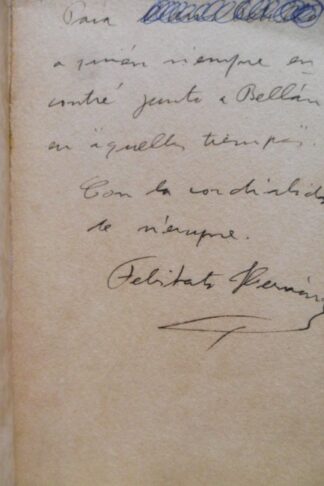 Para
a quién siempre en
contré junto a Bellán
en "aquellos tiempos".
Con la cordialida
de siempre.
Felisberto Hernán